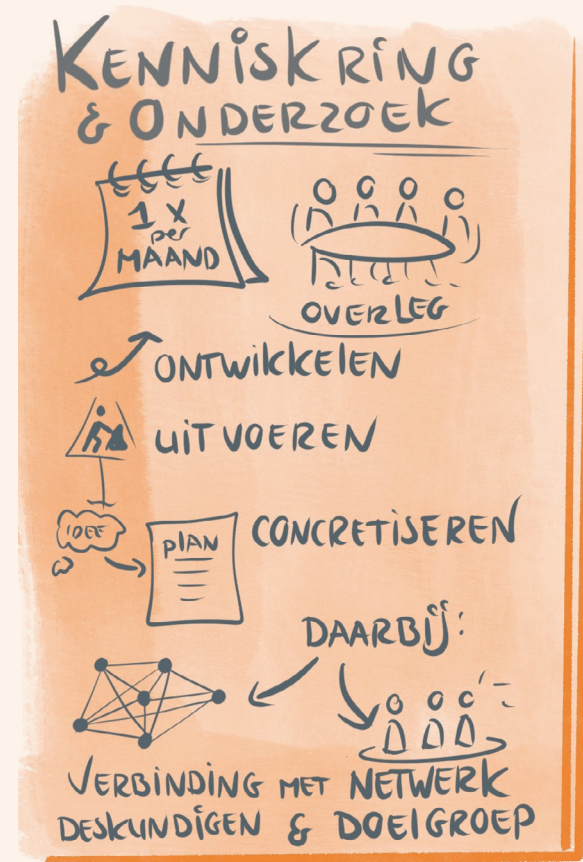 KENNISKRING
& ONDERZOEK
1 X
per
MAAND
OVERLEG
ONTWIKKELEN
UITVOEREN
IDEE
PLAN
CONCRETISEREN
DAARBIJ:
VERBINDING MET NETWERK
DESKUNDIGEN & DOELGROEP